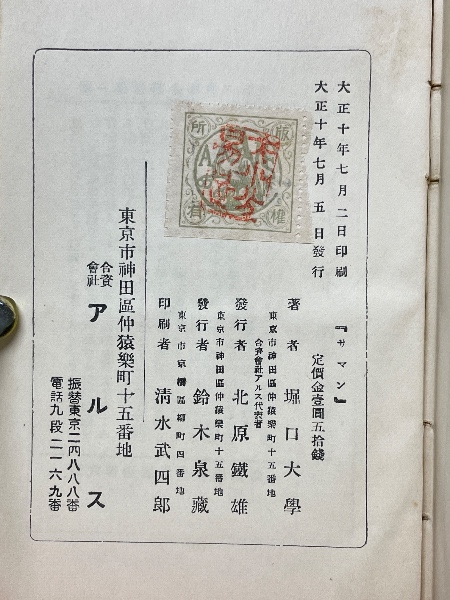 大正十年七月二日印刷
大正十年七月五日發行
『サマン』
定價金壹圓五拾錢
版權
所有
著者 堀口大學
東京市神田區仲猿樂町十五番地
合資會社アルス代表者
發行者 北原鐵雄
東京市神田區仲猿樂町十五番地
發行者 鈴木泉藏
東京市京橋區柳町四番地
印刷者 清水武四郎
東京市神田區仲猿樂町十五番地
合資會社 アルス
振替東京二四八八八番
電話九段二一六九番